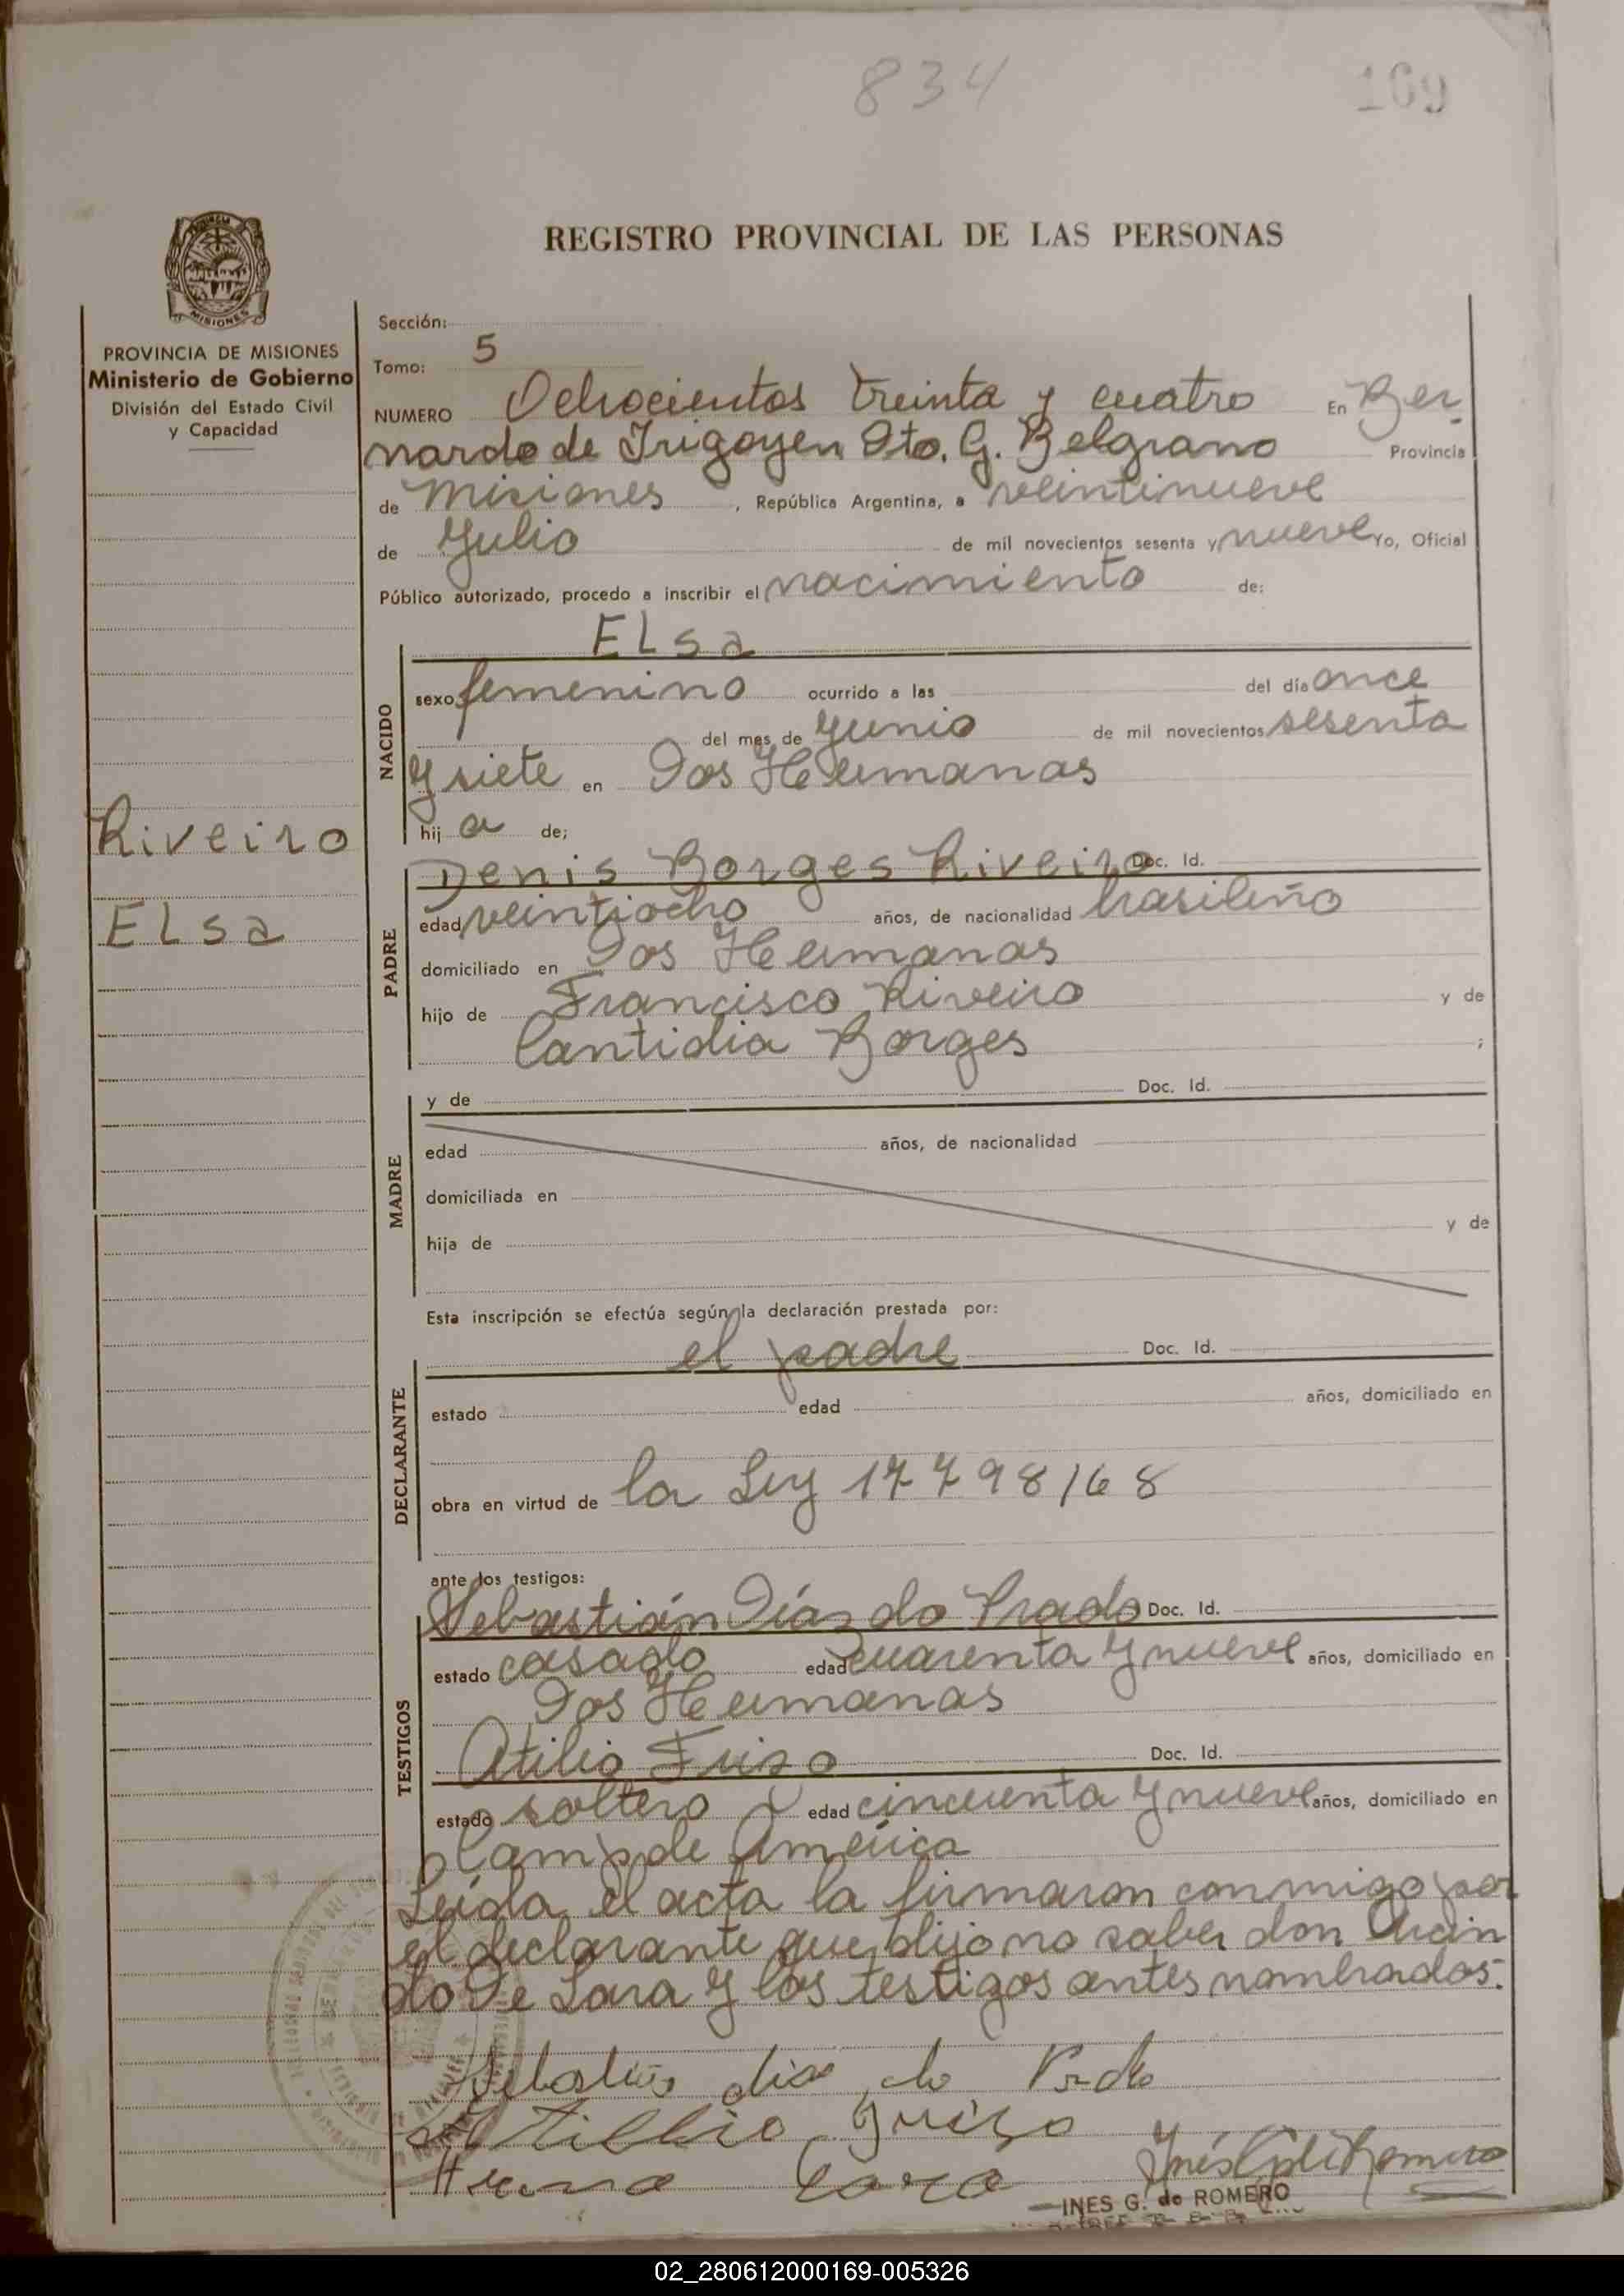 834
169
REGISTRO PROVINCIAL DE LAS PERSONAS
MISIONES
PROVINCIA DE MISIONES
Ministerio de Gobierno
División del Estado Civil
y Capacidad
Riveiro
ELsa
Sección:
Tomo: 5
NUMERO Ochocientos treinta y cuatro En Ber-
nardo de Irigoyen Dto. G. Belgrano Provincia
de Misiones, República Argentina, a veintinueve
de Julio de mil novecientos sesenta y nueve Yo, Oficial
Público autorizado, procedo a inscribir el nacimiento de:
NACIDO
ELsa
sexo femenino ocurrido a las del día once
del mes de Junio de mil novecientos sesenta
y siete en Dos Hermanas
hij a de;
PADRE
Denis Borges Riveiro Doc. Id.
edad veintiocho años, de nacionalidad brasileño
domiciliado en Dos Hermanas
hijo de Francisco Riveiro y de
Cantidia Borges ;
MADRE
y de Doc. Id.
edad años, de nacionalidad
domiciliada en
hija de y de
Esta inscripción se efectúa según la declaración prestada por:
DECLARANTE
el padre Doc. Id.
estado edad años, domiciliado en
obra en virtud de la Ley 17798/68
ante los testigos:
TESTIGOS
Sebastián Días do Prado Doc. Id.
estado casado edad cuarenta y nueve años, domiciliado en
Dos Hermanas
Atilio Friso Doc. Id.
estado soltero edad cincuenta y nueve años, domiciliado en
Campo de América
Leída el acta la firmaron conmigo por
el declarante que dijo no saber don
do De Lara y los testigos antes nombrados.
dias do Prado
Atillio Friso
Lara
INES G. de ROMERO
02_280612000169-005326